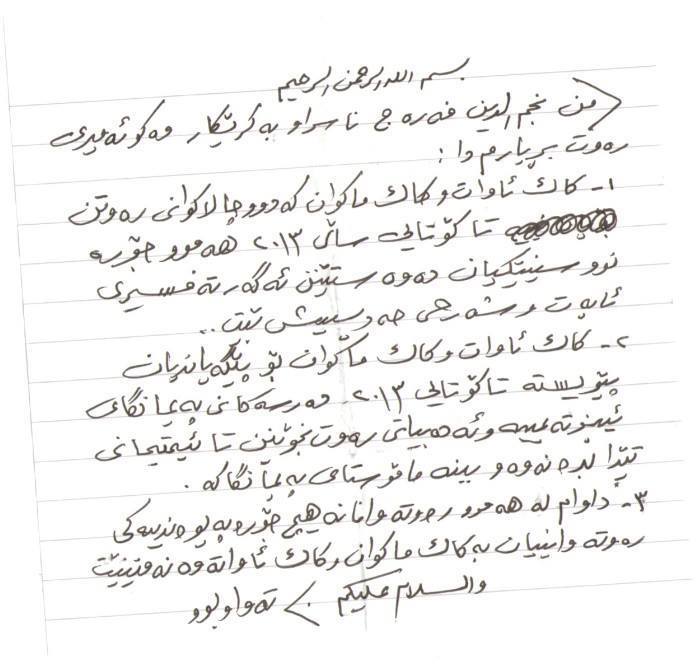 بسم الله الرحمن الرحيم
من نجم الدین فەرەج ناسراو بە کرێکار وەکو ئەمیری
رەوت بڕیارم دا :
١- کاک ئاوات و کاک ماکوان کە دوو چالاکوانی رەوتن
تا کۆتایی ساڵی ٢٠١٣ هەموو جۆرە
نووسینێکیان دەوەستێنن ئەگەر تەفسیری
ئایەت و شەرحی حەدیسیش بێت..
٢- کاک ئاوات و کاک ماکوان بۆ پێگەیاندیان
پێویستە تا کۆتایی ٢٠١٣ دەرسەکانی پەیمانگای
و ئەدەبیاتی رەوت بخوێنن تا ئیمتیحانی
تێدا بدەنەوە و ببنە مامۆستای پەیمانگاکە.
٣- داوام لە هەموو رەوتەوانانە هیچ جۆرە پەیوەندییەکی
رەوتەوانییان بە کاک ماکوان و کاک ئاواتەوە نەمێنێت
والسلام عليكم . > تەواو بوو